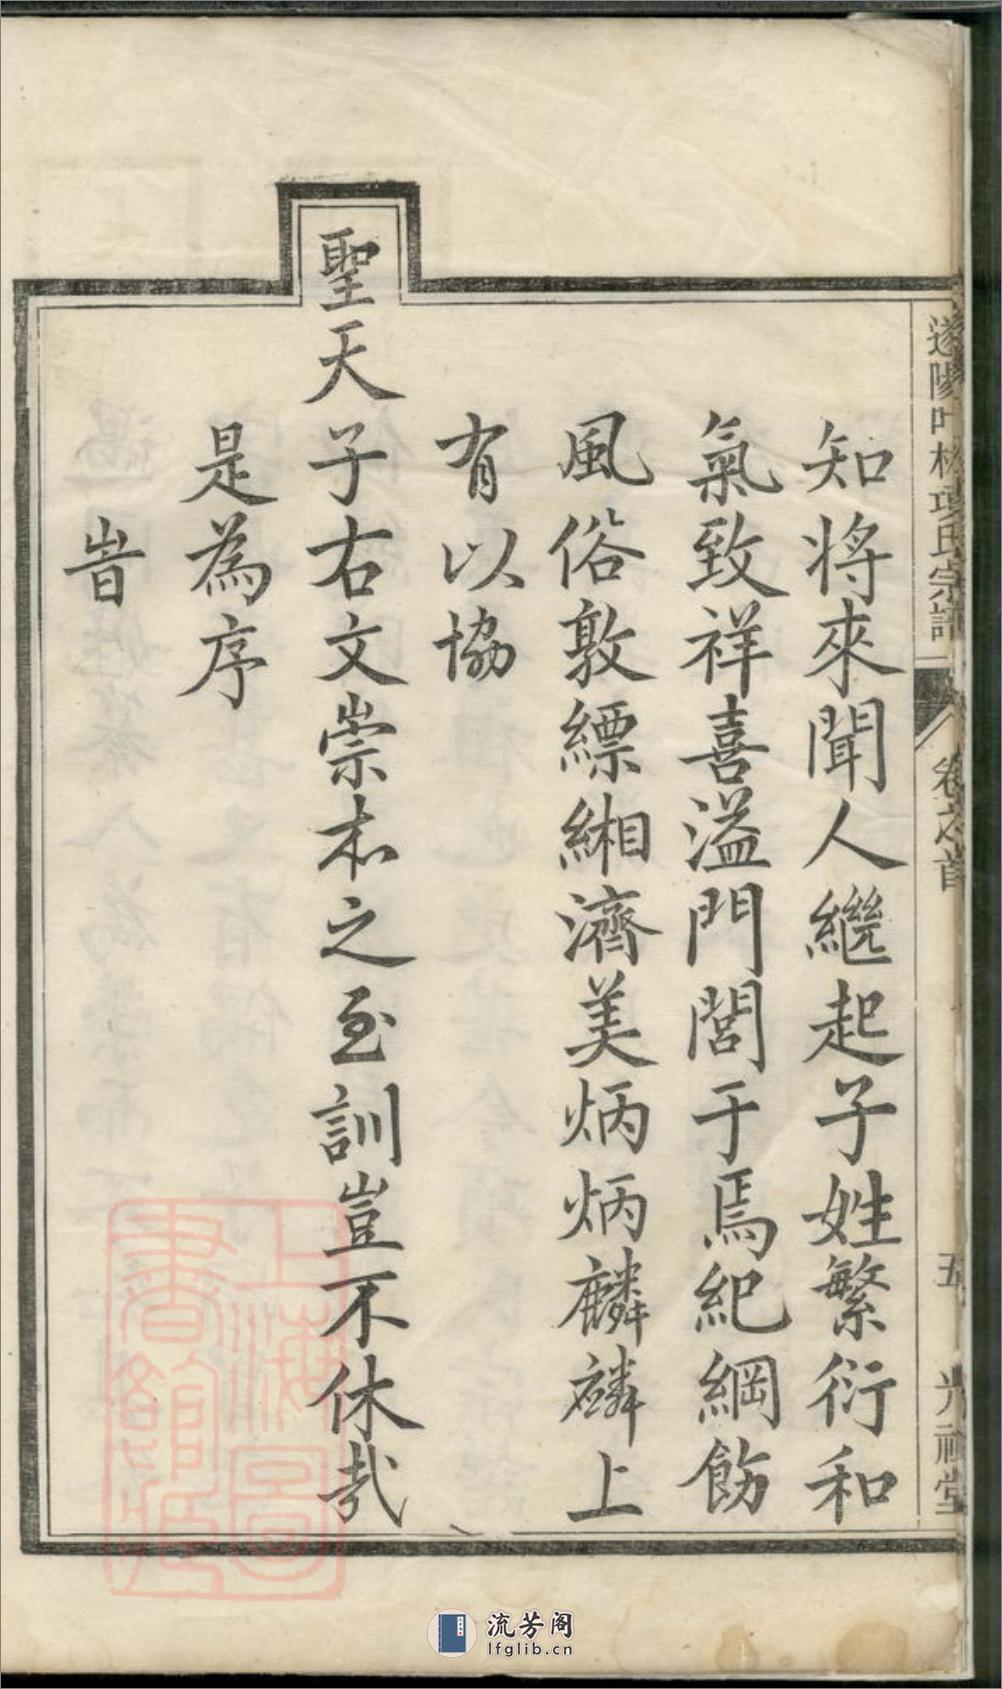 知將來聞人繼起子姓繁衍和
氣致祥喜溢門閭于焉紀綱飭
風俗敦縹緗濟美炳炳麟麟上
有以協
聖天子右文崇本之至訓豈不休哉
是為序
旹
項氏宗譜
卷之首
五
光裕堂
上海圖書館藏
流芳阁
lfglib.cn